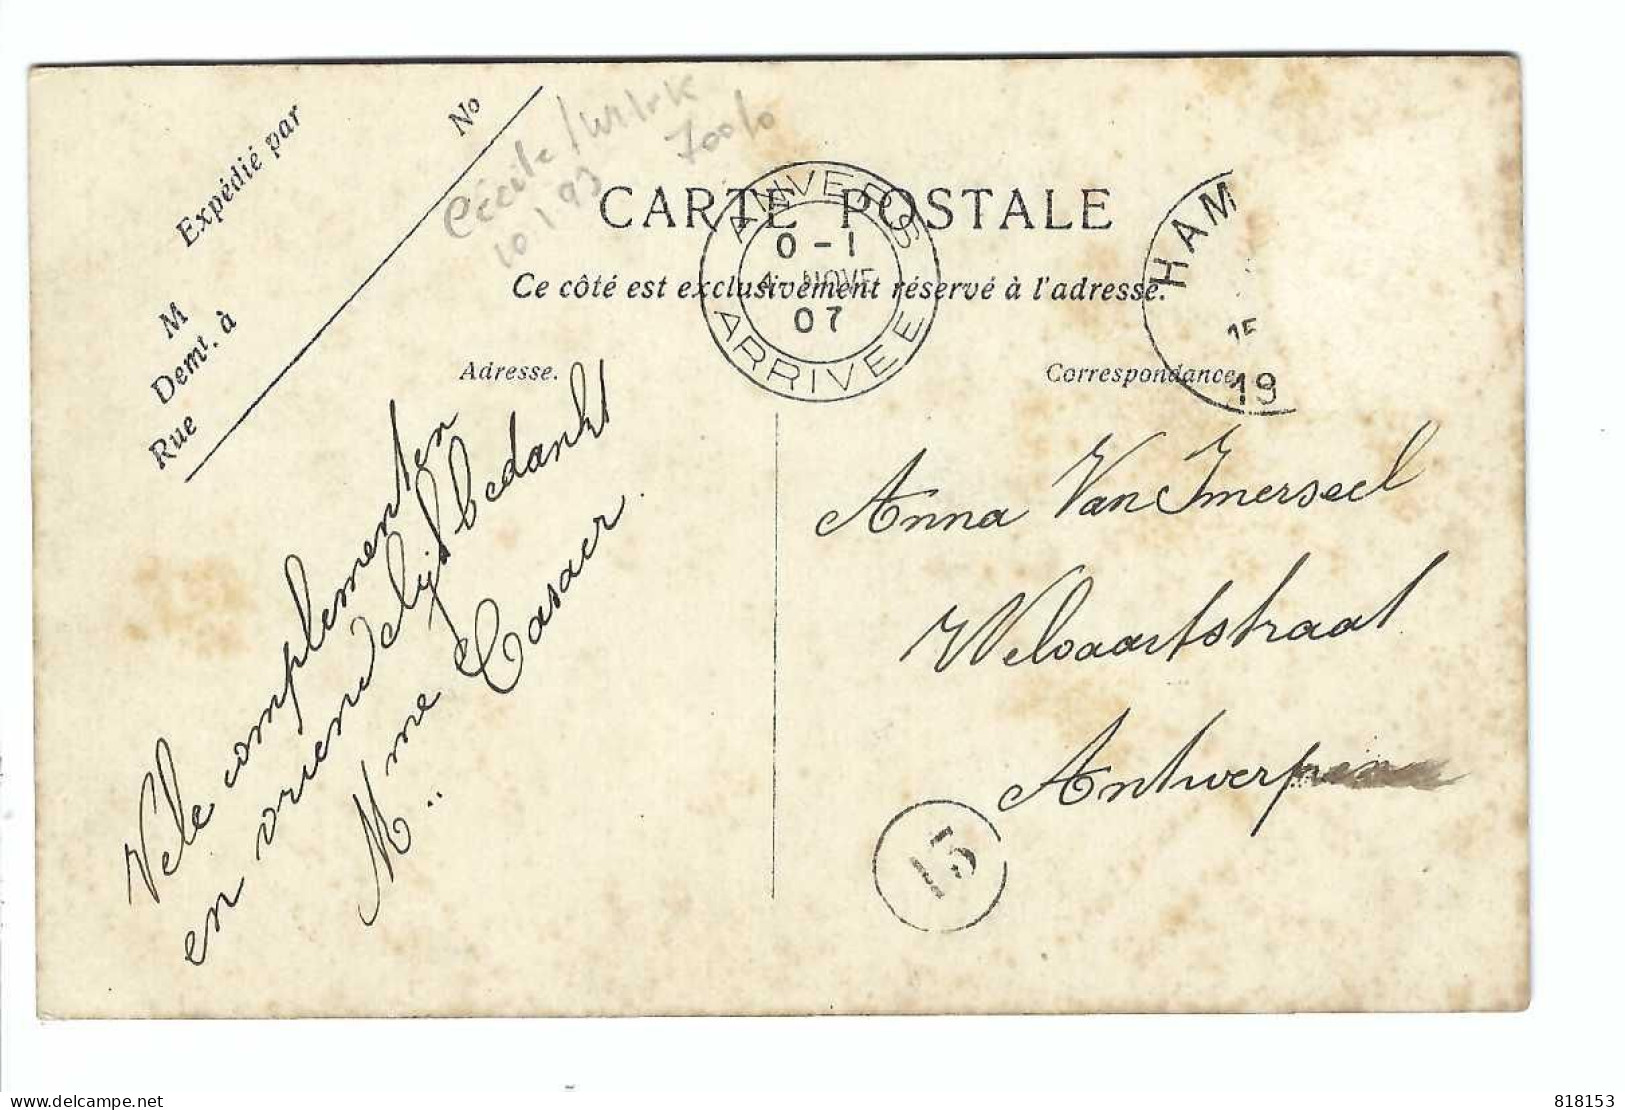 Expédié par
No
M
Demt. à
Rue
Cécile
10 1 93
CARTE POSTALE
Ce côté est exclusivement réservé à l'adresse.
Adresse.
Correspondance.
ANVERS
0-1
NOVE
07
ARRIVEE
HAM
15
19
Vele complementen
en vriendelijk bedankt
Mme Casaer.
Anna Van Imerseel
Welvaartstraat
Antwerpen
15
Delcampe.net
818153